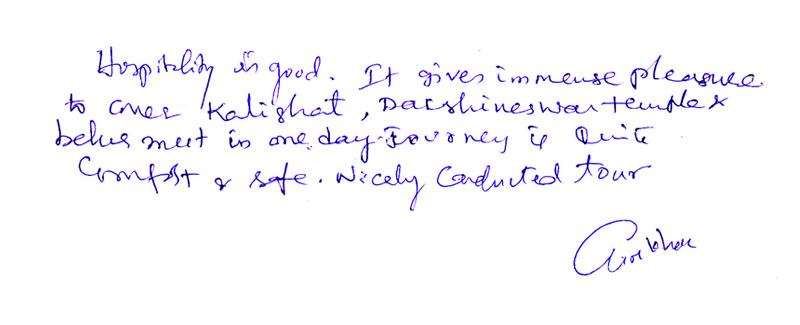 Hospitality is good. It gives immense pleasure
to cover Kalighat, Dakshineswar temple &
belur meet in one day. Journey is Quite
Comfort & safe. Nicely Conducted tour